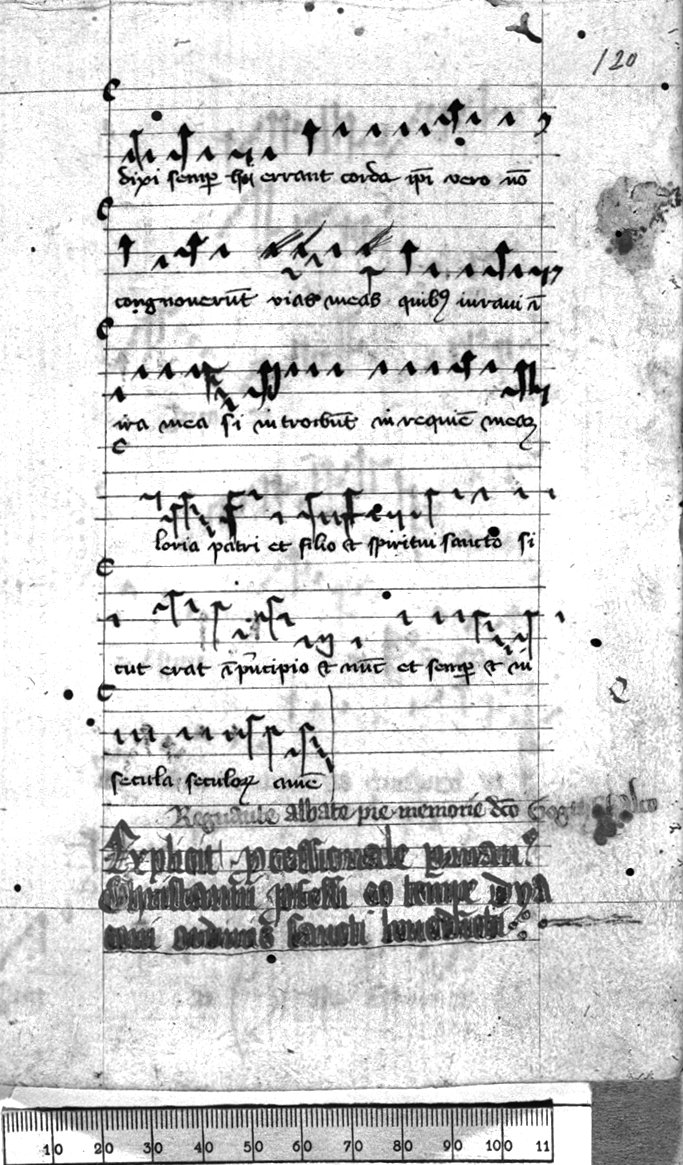 120
dixi semp̱ hii errant corda ip̄i vero nō
congnoverūt vias meas quibꝰ iuraui ī
ira mea si introibūt in requiē meaꝫ
loria patri et filio et spiritui sancto si
cut erat ī pͥncipio et nūc et semp̱ et in
secula seculoꝝ amē
albate pie memorie dc̄o
Explicit pcessionale
sancti benedicti
10 20 30 40 50 60 70 80 90 100 11